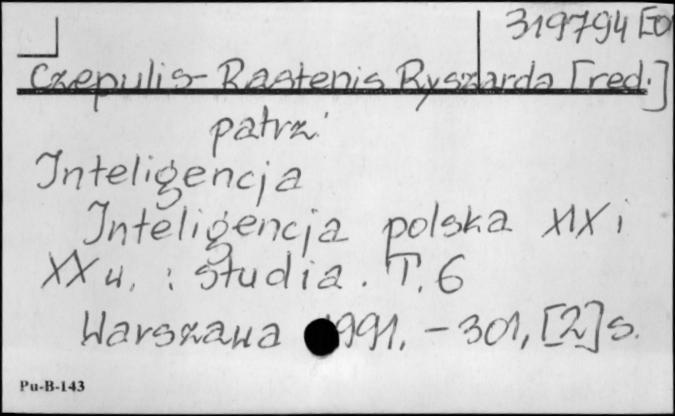 319794
Czepulis-Rastenis Ryszarda [red.]
patrz:
Inteligencja
Inteligencja polska XIX i
XX w. : studia. T. 6
Warszawa 1991. - 301, [2] s.
Pu-B-143